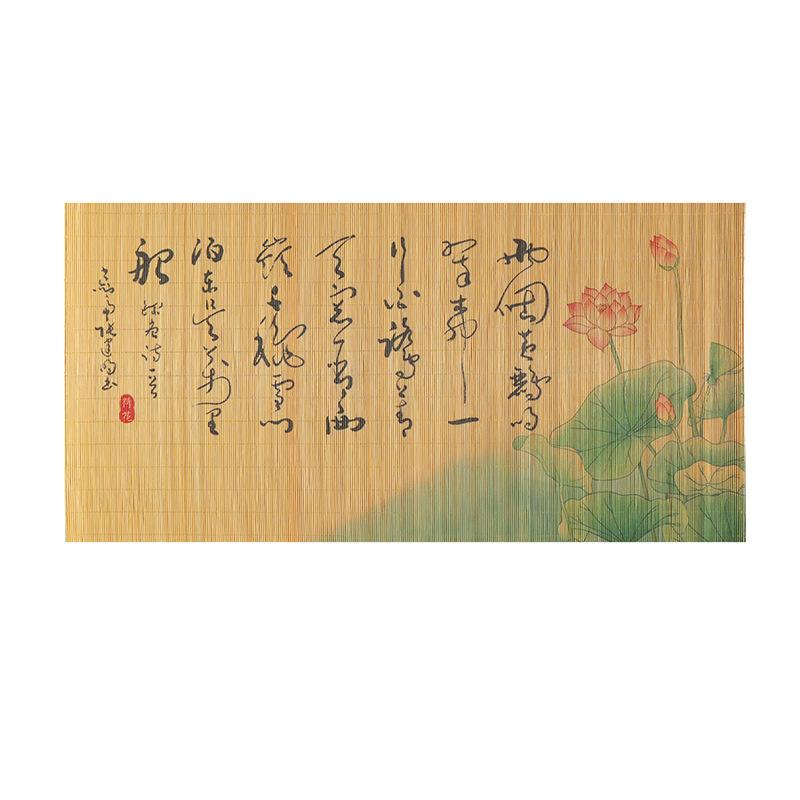 兩個黃鸝鳴
翠柳一
行白鷺上青
天窗含西
嶺千秋雪門
泊東吳萬里
船
詩一首
書